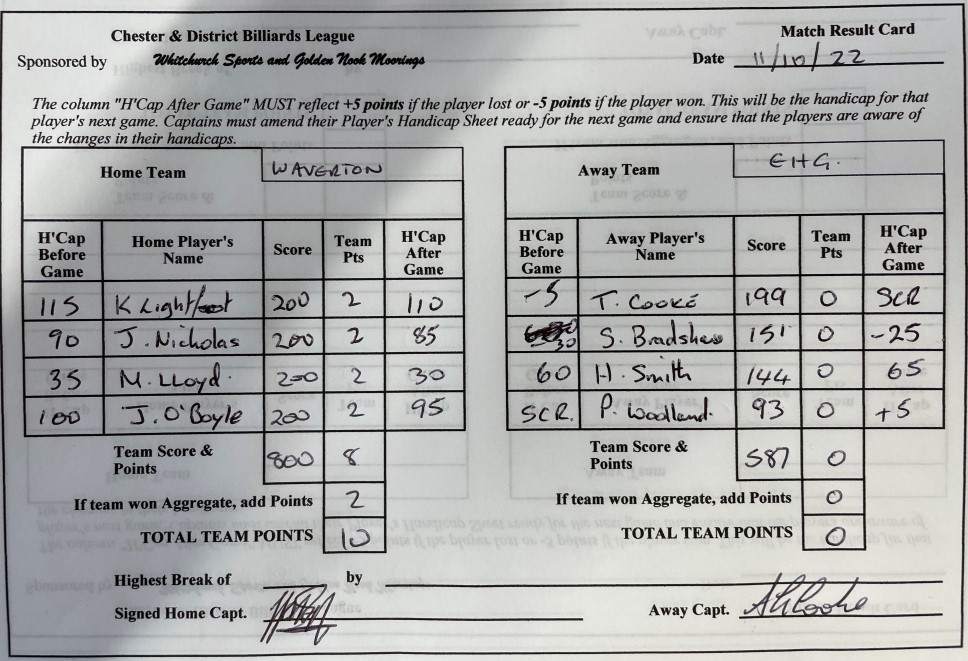 Chester & District Billiards League
Match Result Card
Sponsored by Whitchurch Sports and Golden Nook Moorings
Date 11/10/22
The column "H'Cap After Game" MUST reflect +5 points if the player lost or -5 points if the player won. This will be the handicap for that
player's next game. Captains must amend their Player's Handicap Sheet ready for the next game and ensure that the players are aware of
the changes in their handicaps.
Home Team WAVERTON
H'Cap Before Game Home Player's Name Score Team Pts H'Cap After Game
115 K Lightfoot 200 2 110
90 J. Nicholas 200 2 85
35 M. LLoyd. 200 2 30
100 J. O'Boyle 200 2 95
Team Score & Points 800 8
If team won Aggregate, add Points 2
TOTAL TEAM POINTS 10
Away Team EHG.
H'Cap Before Game Away Player's Name Score Team Pts H'Cap After Game
-5 T. Cooke 199 0 SCR
-30 S. Bradshaw 151 0 -25
60 H. Smith 144 0 65
SCR. P. Woodland. 93 0 +5
Team Score & Points 587 0
If team won Aggregate, add Points 0
TOTAL TEAM POINTS 0
Highest Break of by
Signed Home Capt.
Away Capt. A H Cooke